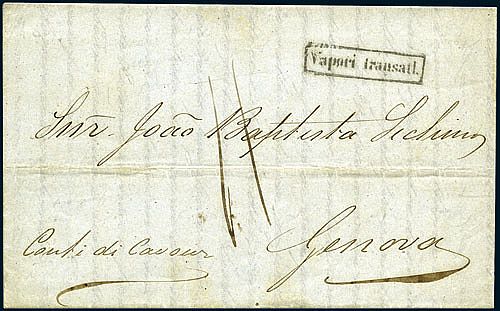 Vapori transatl.
Snr. João Baptista
Conti di Cavour
Genova